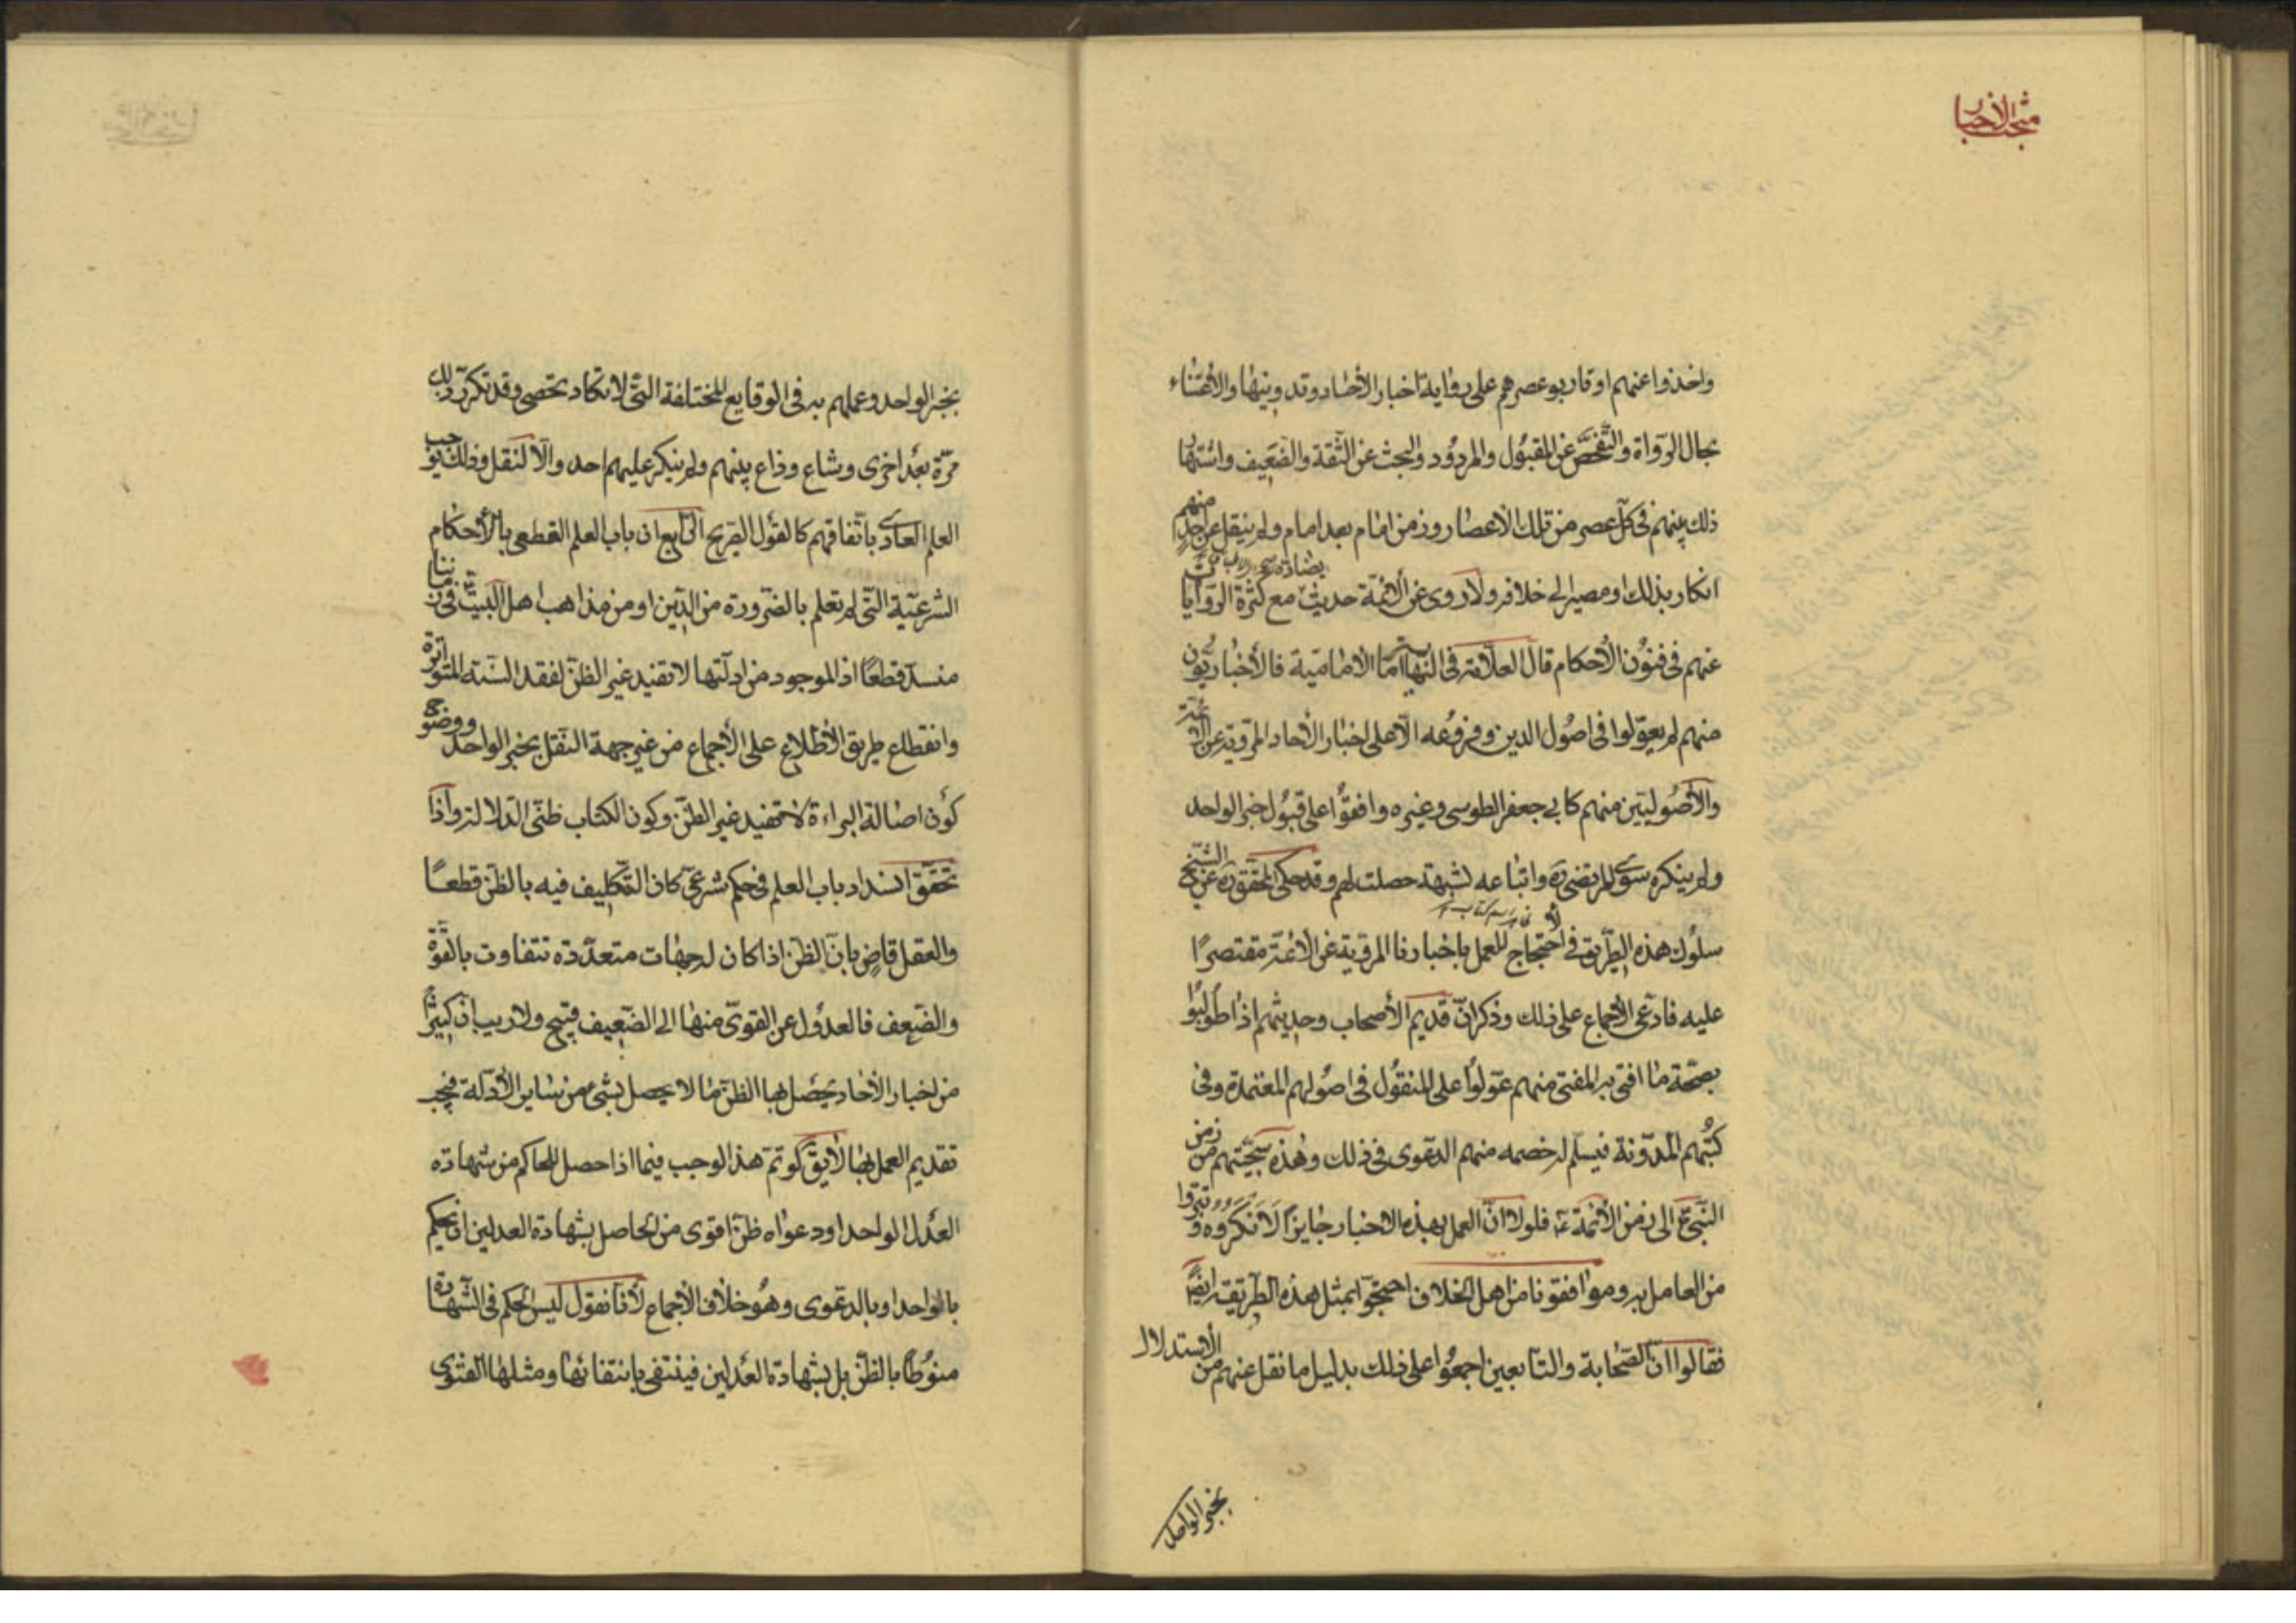 مبحث الاخبار
واخذوا عنهم او قاربوا عصرهم على رواية اخبار الأحاد وتدوينها والاعتناء
بحال الرواة والتفحص عن المقبول والمردود والبحث عن الثقة والضعيف واشتهار
ذلك بينهم في كل عصر من تلك الاعصار وزمن امام بعد امام ولم ينقل عن احد منهم
انكار بذلك او مصير الى خلافه ولا روى عن الائمة حديث يضاده مع كثرة الروايات
عنهم في فنون الأحكام قال العلامة في النهاية اما الامامية فالأخباريون
منهم لم يعولوا في اصول الدين وفروعه الا على اخبار الأحاد المروية عن الائمة
والأصوليين منهم كابي جعفر الطوسي وغيره وافقوا على قبول خبر الواحد
ولم ينكره سوى المرتضى ره واتباعه لشبهة حصلت لهم وقد حكى المحقق ره عن الشيخ
سلوك هذه الطريق في الاحتجاج للعمل باخبارنا المروية عن الائمة مقتصرًا
عليه فادعى الاجماع على ذلك وذكر ان قديم الأصحاب وحديثهم اذا طولبوا
بصحة ما افتى به المفتى منهم عولوا على المنقول في اصولهم المعتمدة وفى
كتبهم المدونة فيسلم له خصمه منهم الدعوى في ذلك وهذه سجيتهم من زمن
النبي ع الى زمن الأئمة ع فلولا ان العمل بهذه الاخبار جايزا لانكروه وتبرؤا
من العامل به وموافقونا من اهل الخلاف احتجوا بمثل هذه الطريقة ايضًا
فقالوا ان الصحابة والتابعين اجمعوا على ذلك بدليل ما نقل عنهم من الاستدلال
بخبر الواحد
بخبر الواحد وعملهم به في الوقايع المختلفة التي لا تكاد تحصى وقد تكرر ذلك
مرة بعد اخرى وشاع وذاع بينهم ولم ينكر عليهم احد والا لنقل وذلك يوجب
العلم العادى باتفاقهم كالقول الصريح الرابع ان باب العلم القطعى بالأحكام
الشرعية التي لم تعلم بالضرورة من الدين او من مذاهب اهل البيت في زماننا
منسد قطعًا اذ الموجود من ادلتها لا تفيد غير الظن لفقد السنة المتواترة
وانقطاع طريق الأطلاع على الأجماع من غير جهة النقل بخبر الواحد ووضوح
كون اصالة البراءة لا تفيد غير الظن وكون الكتاب ظنى الدلالة واذا
تحقق انسداد باب العلم في حكم شرعي كان التكليف فيه بالظن قطعًا
والعقل قاض بان الظن اذا كان له جهات متعددة تتفاوت بالقوة
والضعف فالعدول عن القوى منها الى الضعيف قبيح ولا ريب ان كثيرًا
من اخبار الأحاد يحصل بها الظن ما لا يحصل بشئ من ساير الأدلة فيجب
تقديم العمل بها لا يق لو تم هذا لوجب فيما اذا حصل للحاكم من شهادة
العدل الواحد او دعواه ظن اقوى من الحاصل بشهادة العدلين ان يحكم
بالواحد او بالدعوى وهو خلاف الأجماع لأنا نقول ليس الحكم في الشهادة
منوطًا بالظن بل بشهادة العدلين فينتفى بانتفائها ومثلها الفتوى